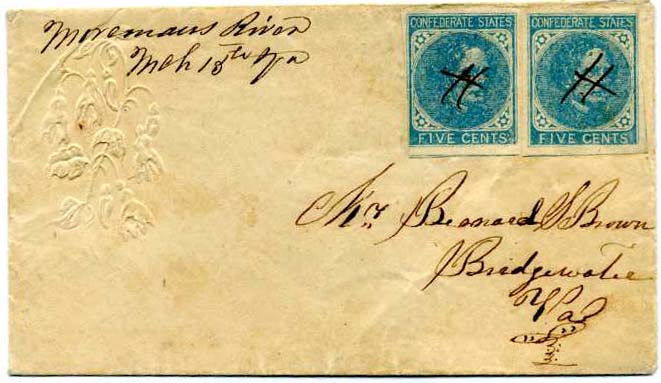 Moremans River
Mch 18th Va
CONFEDERATE STATES
FIVE CENTS
CONFEDERATE STATES
FIVE CENTS
Mr Beanard S Brown
Bridgewater
Va